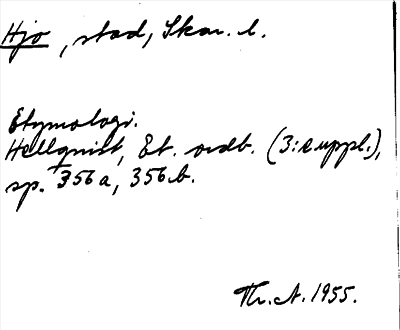 Hjo, stad, Skar. l.
Etymologi.
Hellquist, Et. ordb. (3:e uppl.),
sp. 356a, 356b.
Th. A. 1955.